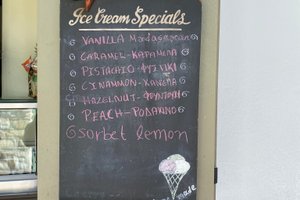 Ice Cream Specials
VANILLA Madagascan
CARAMEL-ΚΑΡΑΜΕΛΑ
PISTACHIO-ΦΥΣΤΙΚΙ
CINAMMON-ΚΑΝΕΛΑ
HAZELNUT-ΦΟΥΝΤΟΥΚΙ
PEACH-ΡΟΔΑΚΙΝΟ
sorbet lemon
made